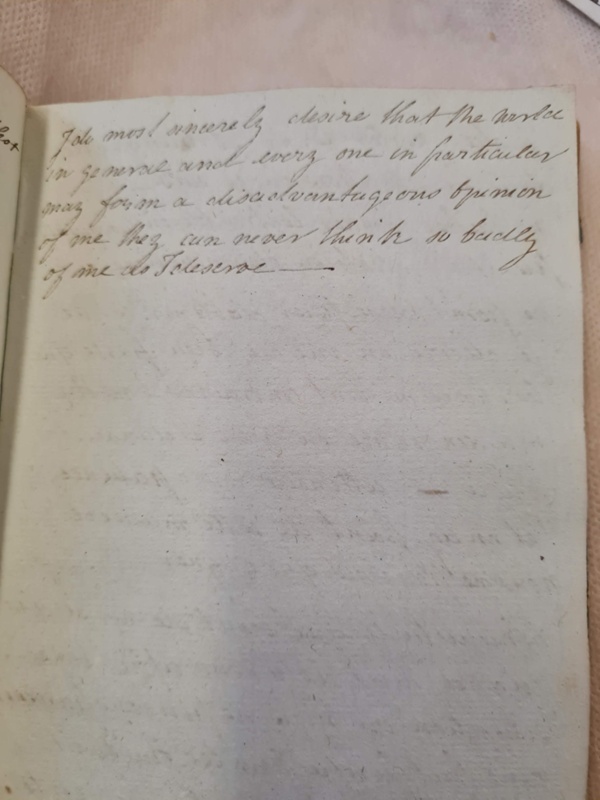 I do most sincerely desire that the world
in general and every one in particular
may form a disadvantageous opinion
of me they can never think so badly
of me as I deserve —